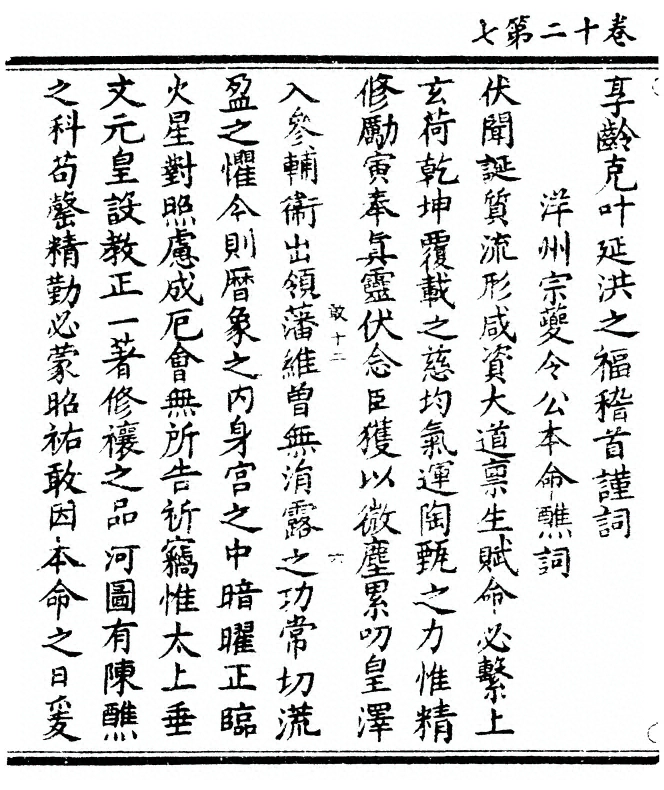 卷十二第七
享齡克叶延洪之福稽首謹詞
洋州宗夔令公本命醮詞
伏聞誕質流形咸資大道禀生賦命必繫上
玄荷乾坤覆載之慈均氣運陶甄之力惟精
修勵寅奉眞靈伏念臣獲以微塵累叨皇澤
敢十二 六
入參輔衛出領藩維曾無涓露之功常切滿
盈之懼今則曆象之内身宮之中暗曜正臨
火星對照慮成厄會無所告祈竊惟太上垂
文元皇設教正一著修禳之品河圖有陳醮
之科苟罄精勤必蒙昭祐敢因本命之日爰